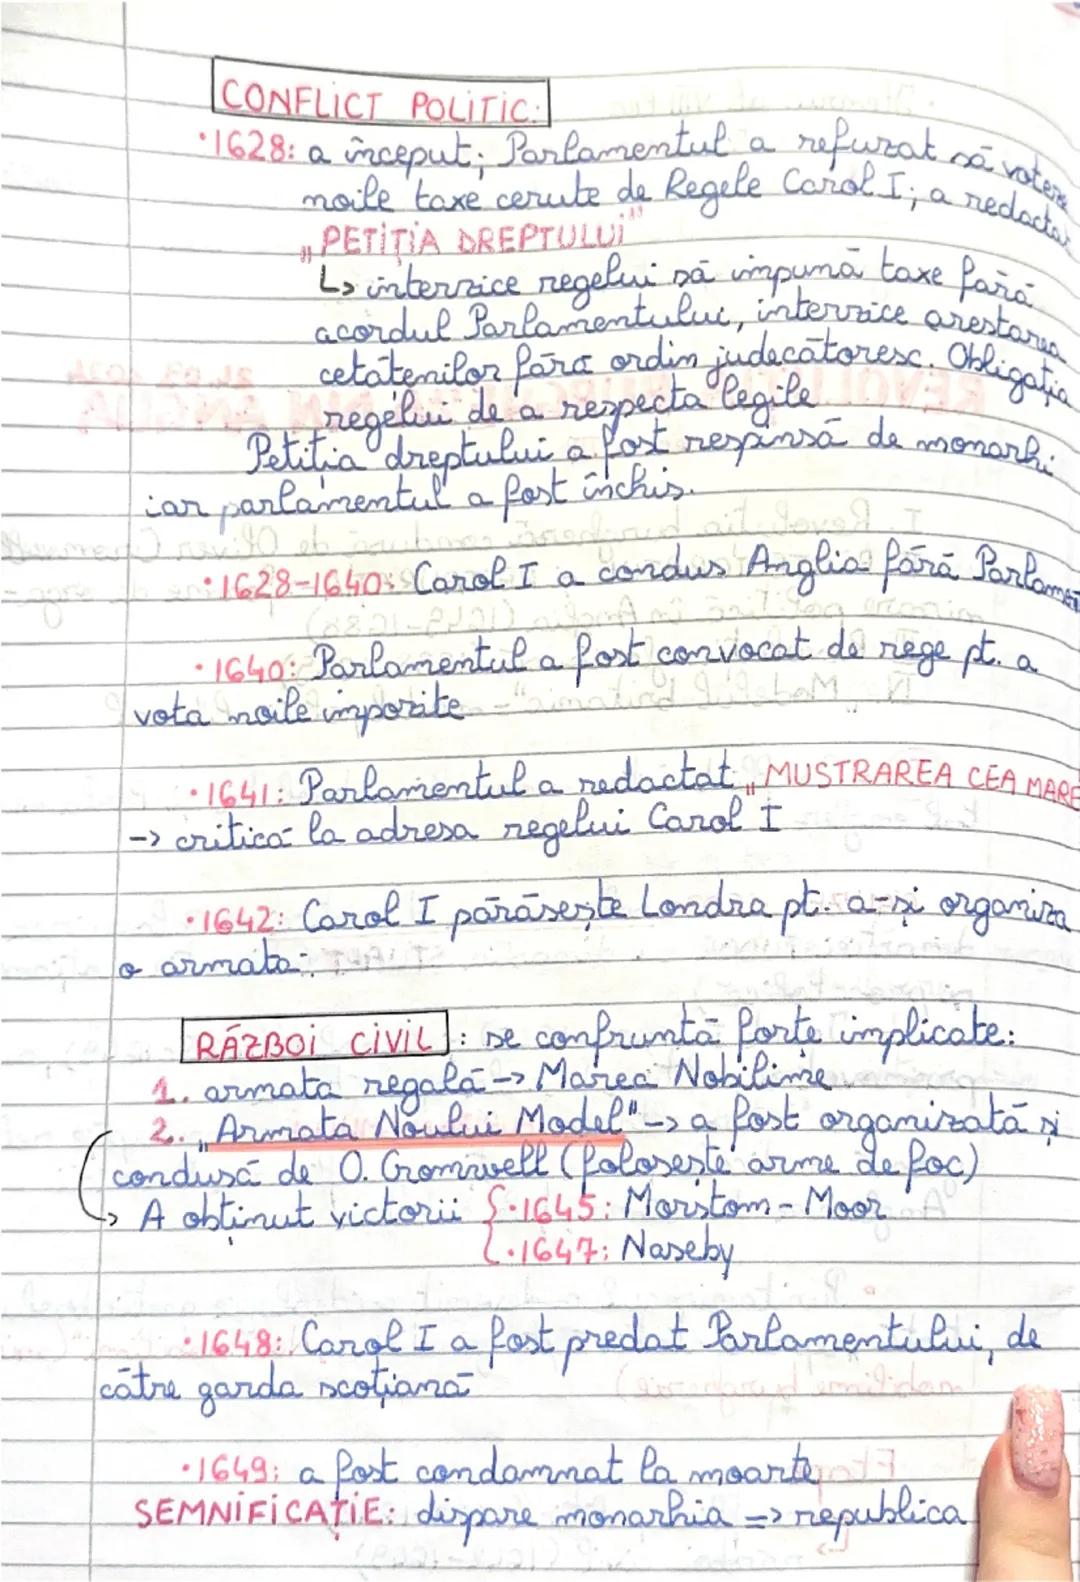 CONFLICT POLITIC:
·1628: a început; Parlamentul a refuzat să voteze
noile taxe cerute de Regele Carol I; a redactat
„PETIȚIA DREPTULUI"
↳ interzice regelui să impună taxe fără
acordul Parlamentului, interzice arestarea
cetătenilor fără ordin judecătoresc. Obligația
regelui de a respecta legile
Petitia dreptului a fost respinsă de monarh;
iar parlamentul a fost închis.
·1628-1640: Carol I a condus Anglia fără Parlament
·1640: Parlamentul a fost convocat de rege pt. a
vota noile impozite
·1641: Parlamentul a redactat „MUSTRAREA CEA MARE
-> critică la adresa regelui Carol I
·1642: Carol I părăsește Londra pt. a-și organiza
o armata.
RĂZBOI CIVIL: se confruntă forte implicate:
1. armata regală -> Marea Nobilime
2. „Armata Noului Model" -> a fost organizată și
condusă de O. Cromwell (folosește arme de foc)
↳ A obținut victorii {·1645: Marstom-Moor
·1647: Naseby
·1648: Carol I a fost predat Parlamentului, de
către garda scoțiană
·1649: a fost condamnat la moarte
SEMNIFICAȚIE: dispare monarhia => republica